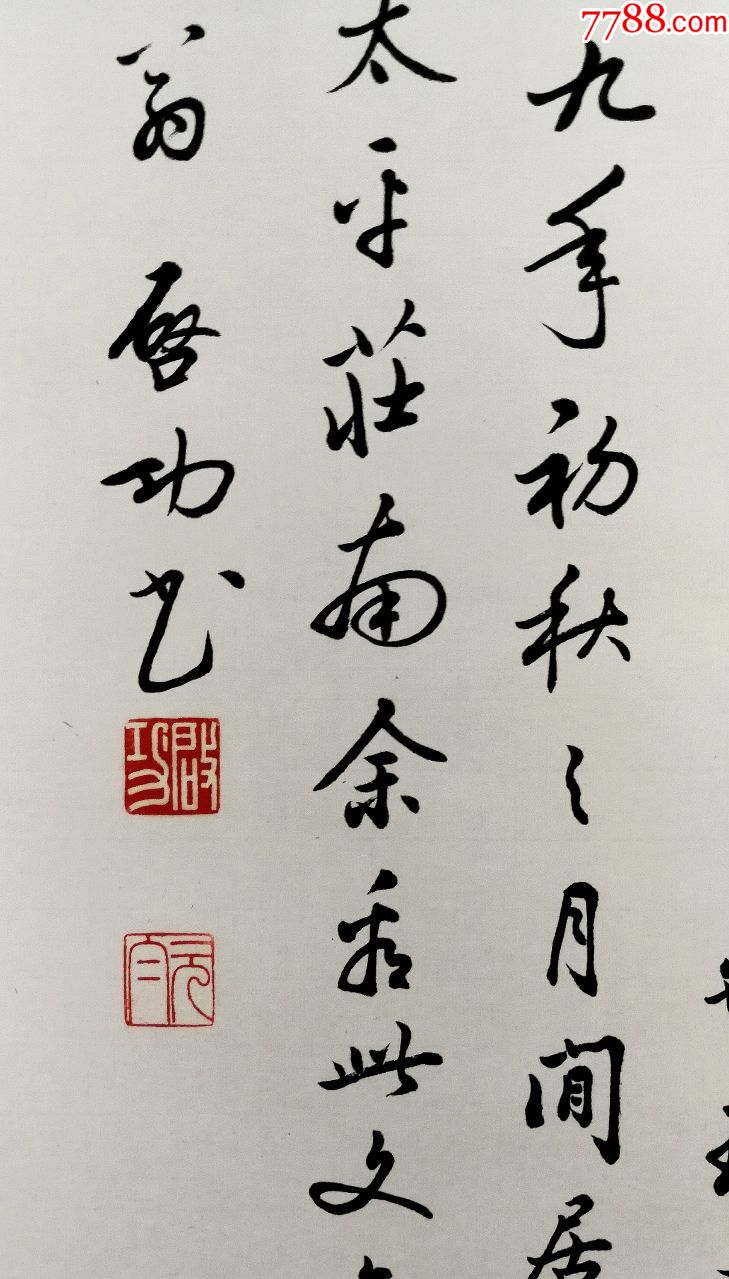 7788.com
九年初秋之月閒居
太平莊南余此文
翁 啓功書
啟功
元白